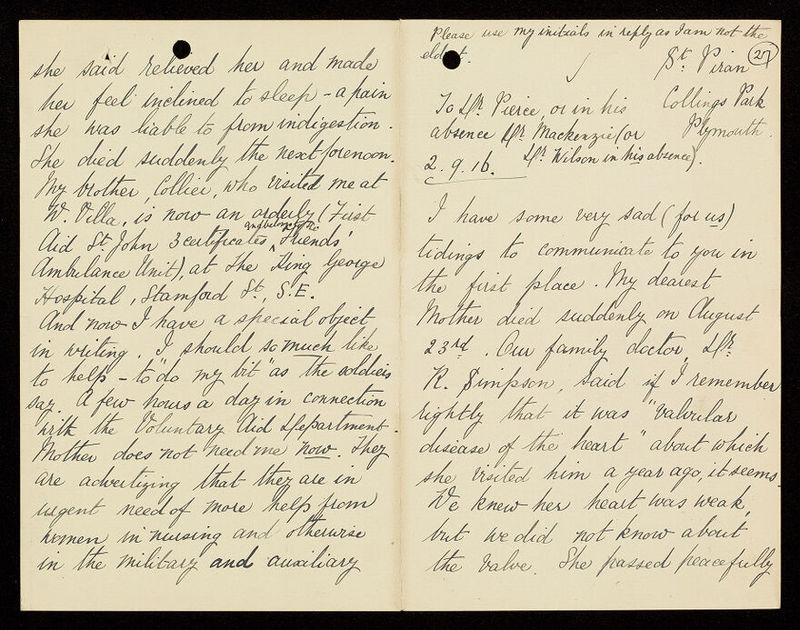 Please use my initials in reply as I am not the
eldest.
27
St. Piran
Collings Park
Plymouth.
To Dr. Pierce, or in his
absence Dr. Mackenzie (or
Dr. Wilson in his absence).
2.9.16.
I have some very sad (for us)
tidings to communicate to you in
the first place. My dearest
Mother died suddenly on August
23rd. Our family doctor, Dr.
R. Simpson, said if I remember
rightly that it was "valvular
disease of the heart" about which
she visited him a year ago, it seems.
We knew her heart was weak,
but we did not know about
the valve. She passed peacefully
she said relieved her and made
her feel inclined to sleep - a pain
she was liable to from indigestion.
She died suddenly the next forenoon.
My brother, Collier, who visited me at
W. Villa, is now an orderly (First
Aid St. John 3 certificates, and belongs to the Friends'
Ambulance Unit), at the King George
Hospital, Stamford St., S.E.
And now I have a special object
in writing. I should so much like
to help - to "do my bit" as the soldiers
say. A few hours a day in connection
with the Voluntary Aid Department.
Mother does not need me now. They
are advertizing that they are in
urgent need of more help from
women in nursing and otherwise
in the military and auxiliary